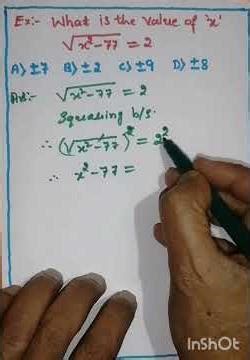 Ex:- What is the value of 'x'
√x²-77 = 2
A) ±7 B) ±2 C) ±9 D) ±8
Ans:- √x²-77 = 2
Squaring b/s.
∴ (√x²-77)² = 2²
∴ x²-77 =
InShOt